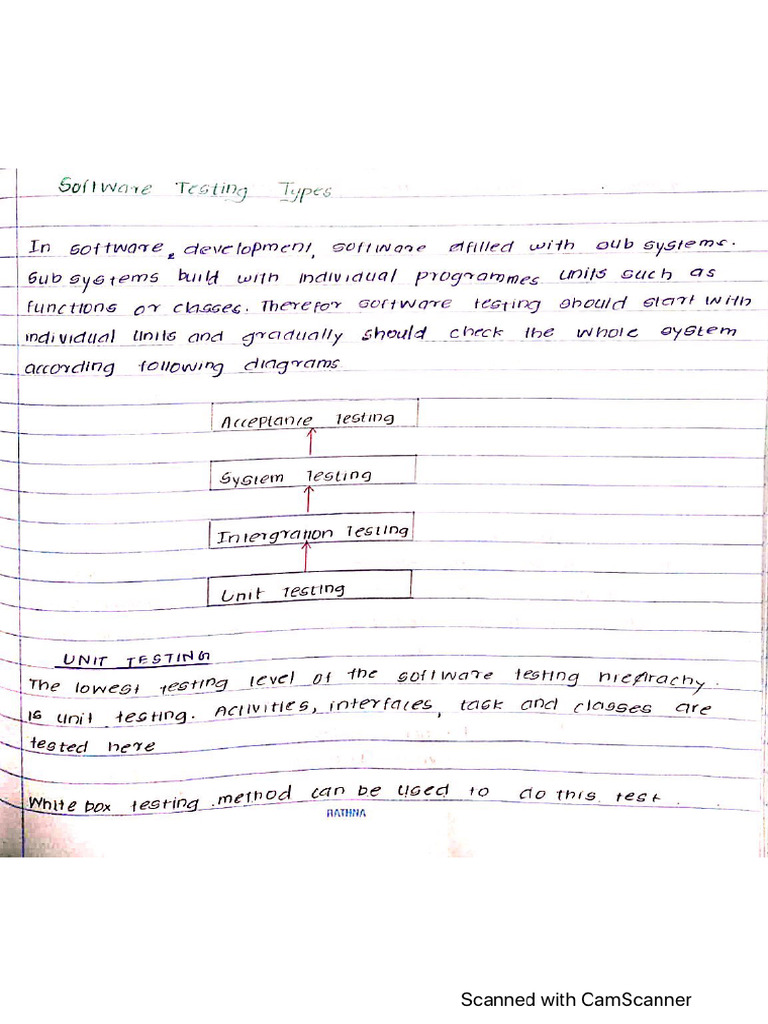 Software Testing Types
In software, development, software afilled with sub systems.
Sub systems build with individual programmes units such as
functions or classes. Therefor software testing should start with
individual units and gradually should check the whole system
according following diagrams
Acceptance Testing
System Testing
Intergration Testing
Unit Testing
UNIT TESTING
The lowest testing level of the software testing hierarachy.
is unit testing. Activities, interfaces, task and classes are
tested here
White box testing method can be used to do this test.
RATHNA
Scanned with CamScanner